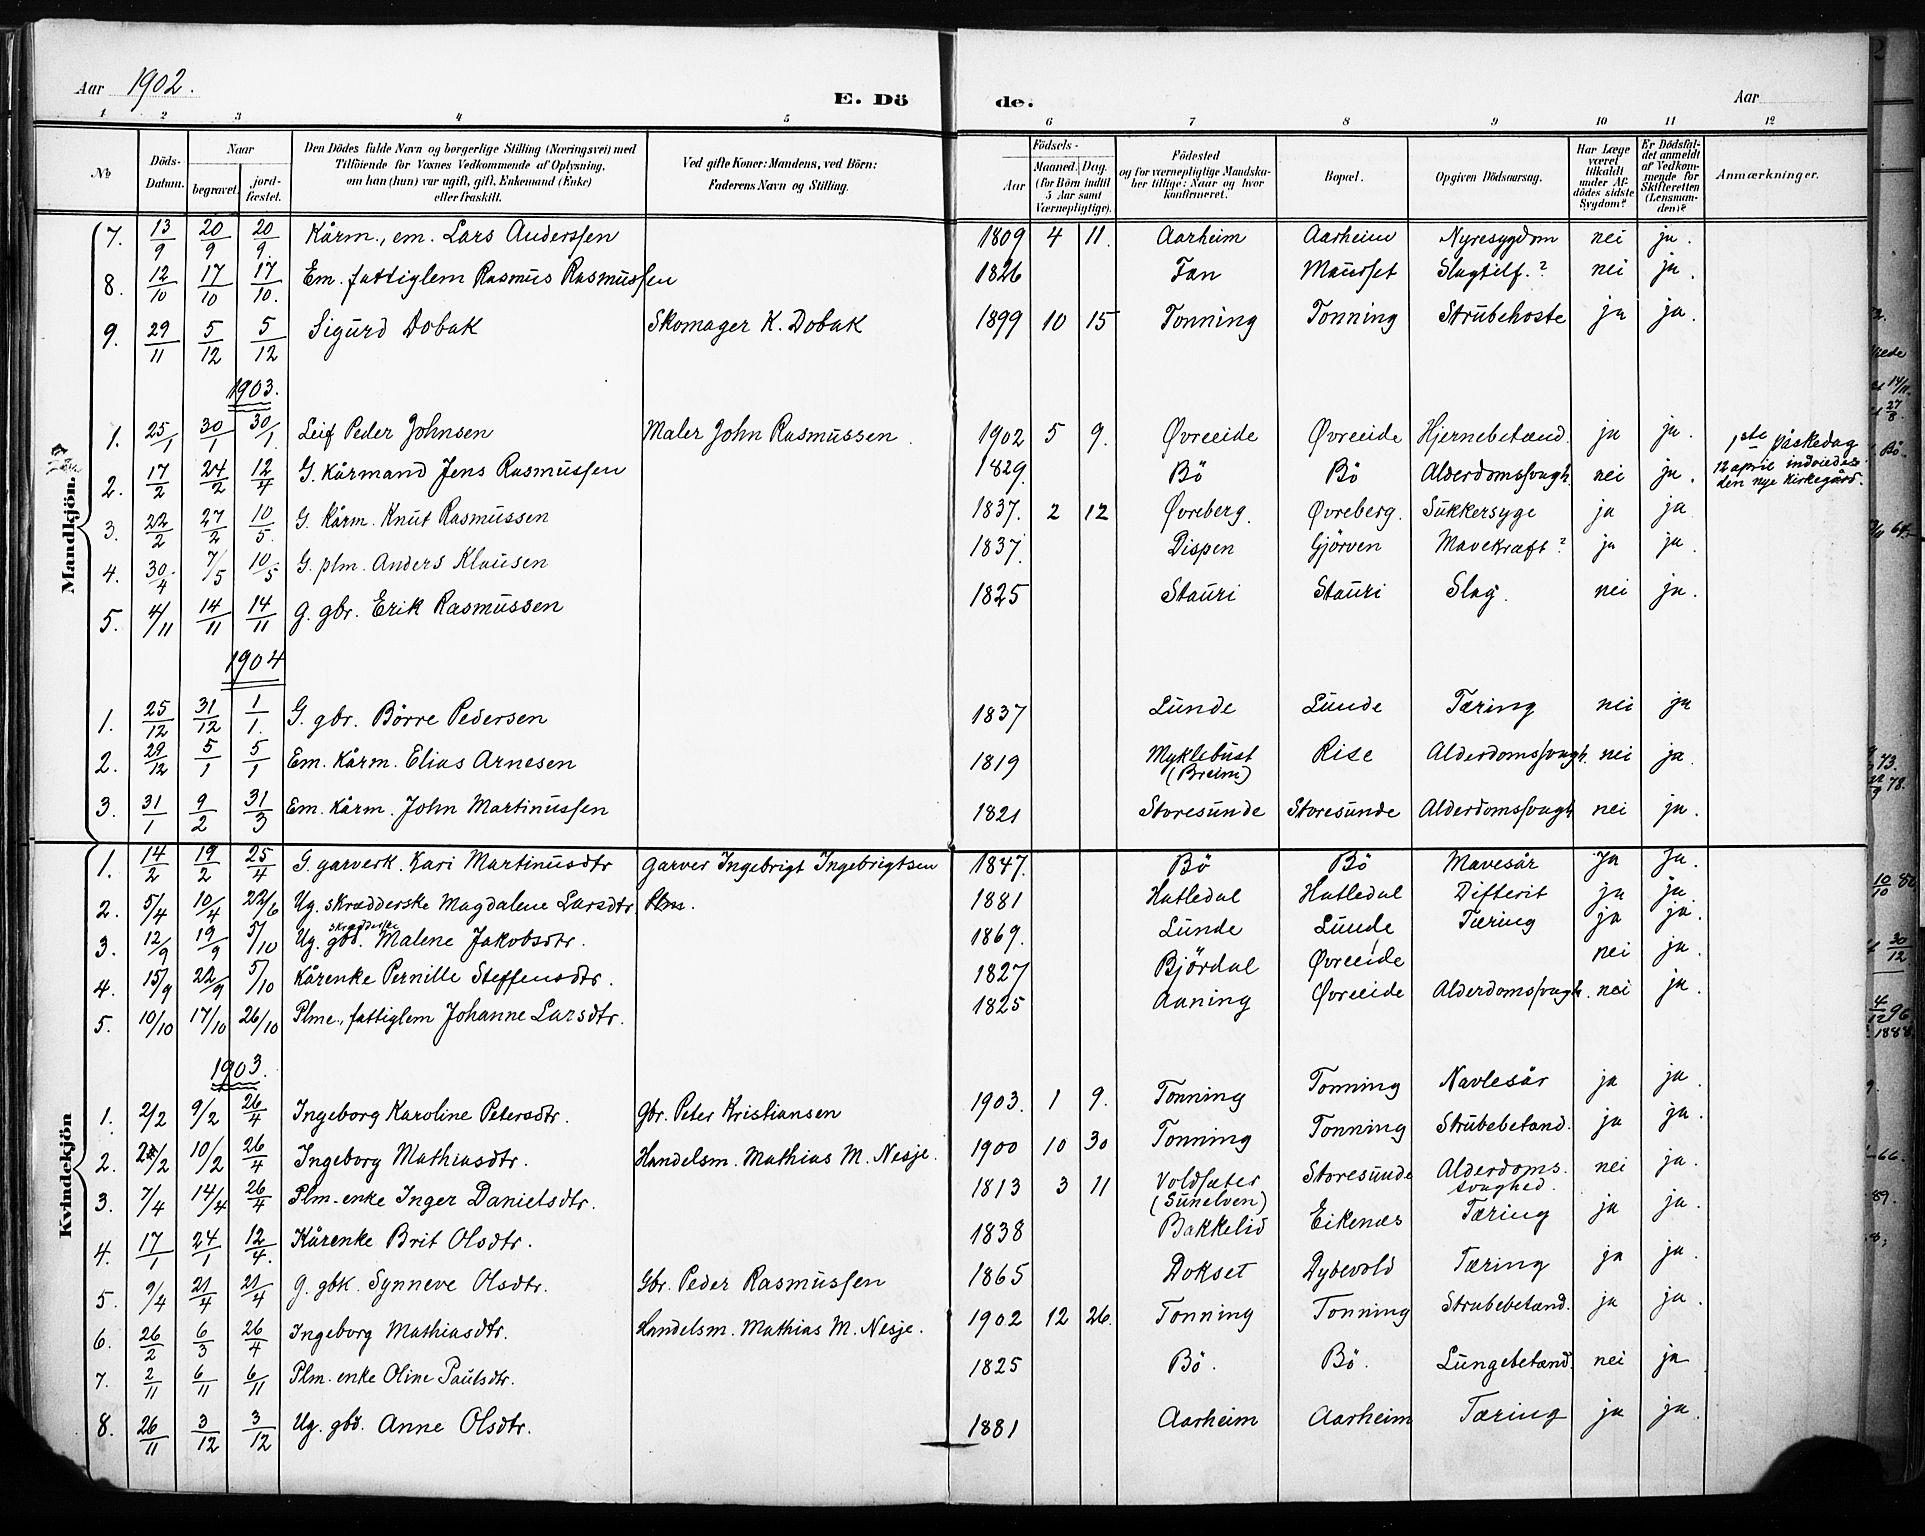 Aar 1902.
E. Dö de.
Aar
1 2 3 4 5 6 7 8 9 10 11 12
No | Döds-Datum. | Naar begravet. | jord-fæstet. | Den Dödes fulde Navn og borgerlige Stilling (Næringsvei) med Tilföiende for Voxnes Vedkommende af Oplysning, om han (hun) var ugift, gift, Enkemand (Enke) eller fraskilt. | Ved gifte Koner: Mandens, ved Börn: Faderens Navn og Stilling. | Födsels- Aar | Maaned. Dag. (for Börn indtil 5 Aar samt Værnepligtige). | Födested og for værnepligtige Mandskaber tillige: Naar og hvor konfirmeret. | Bopæl. | Opgiven Dödsaarsag. | Har Læge været tilkaldt under Afdödes sidste Sygdom? | Er Dödsfaldet anmeldt af Vedkommende for Skifteretten (Lensmanden)? | Anmærkninger.
Mandkjön.
7. 13/9 20/9 20/9. Kårm., em. Lars Anderssen 1809 4 11. Aarheim Aarheim Nyresygdom nei ja.
8. 12/10 17/10 17/10. Em. fattiglem Rasmus Rasmussen 1826 Tan Maurset Slagtilf.? nei ja.
9. 29/11 5/12 5/12 Sigurd Dobak Skomager K. Dobak 1899 10 15 Tonning Tonning Strubehoste ja ja.
1903.
1. 25/1 30/1 30/1. Leif Peder Johnsen Maler John Rasmussen. 1902 5 9. Øvreeide Øvreeide Hjernebetænd. ja ja. 1ste påskedag
2. 17/2 24/2 12/4 G. Kårmand Jens Rasmussen 1829. Bö Bö Alderdomssvagh. nei ja. 12 april indviedes den nye kirkegård.
3. 22/2 27/2 10/5. G. Kårm. Knut Rasmussen 1837. 2 12 Øvreberg. Øvreberg. Sukkersyge ja ja
4. 30/4 7/5 10/5 G. plm. Anders Klausen 1837. Dispen Gjörven Mavekræft? ja ja.
5. 4/11 14/11 14/11 G. gbr. Erik Rasmussen 1825 Stauri Stauri Slag. nei ja.
1904
1. 25/12 31/12 1/1. G. gbr. Börre Pedersen 1837 Lunde Lunde Tæring nei ja
2. 29/12 5/1 5/1 Em. Kårm. Elias Arnesen 1819 Myklebust (Breim) Rise Alderdomssvagh. nei ja.
3. 31/1 9/2 31/3 Em. Kårm. John Martinussen 1821 Storesunde Storesunde Alderdomssvagh nei ja.
Kvindekjön
1. 14/2 19/2 25/4 G. garverk. Kari Martinusdtr Garver Ingebrigt Ingebrigtsen 1847. Bö Bö Mavesår Ja Ja.
2. 5/4 10/4 22/6 Ug. skrædderske Magdalene Larsdtr. Plm. 1881 Hatledal Hatledal Difterit ja ja
3. 12/9 19/9 5/10 Ug. gbd. skrædderske Malene Jakobsdtr. 1869. Lunde Lunde Tæring ja ja.
4. 15/9 22/9 5/10 Kårenke Pernille Steffensdtr. 1827 Björdal Øvreeide nei ja.
5. 10/10 17/10 26/10 Plme., fattiglem Johanne Larsdtr. 1825 Aaning Øvreeide Alderdomssvagh. nei ja.
1903.
1. 2/2 9/2 26/4 Ingeborg Karoline Petersdtr. Gbr. Peter Kristiansen 1903. 1 9. Tonning Tonning Navlesår ja ja.
2. 2/2 10/2 26/4 Ingeborg Mathiasdtr. Handelsm. Mathias M. Nesje. 1900 10 30 Tonning Tonning Strubebetænd. ja ja.
3. 7/4 14/4 26/4 Plm-enke Inger Danielsdtr. 1813 3 11 Voldsæter (Sunelven) Storesunde Alderdomssvaghed. nei ja.
4. 17/1 24/1 12/4. Kårenke Brit Olsdtr. 1838 Bakkelid Eikenæs Tæring ja ja.
5. 9/4 21/4 21/4 G. gbk. Synneve Olsdtr. Gbr. Peder Rasmussen 1865 Dokset Dybevold Tæring ja ja.
6. 26/2 6/3 26/4 Ingeborg Mathiasdtr. Handelsm. Mathias M. Nesje. 1902 12 26. Tonning Tonning Strubebetænd. ja ja.
7. 2/11 6/11 6/11 Plm-enke Oline Paulsdtr. 1825 Bö. Bö. Lungebetænd. nei ja
8. 26/11 3/12 3/12 Ug. gbd. Anne Olsdtr. 1881 Aarheim Aarheim Tæring ja ja.